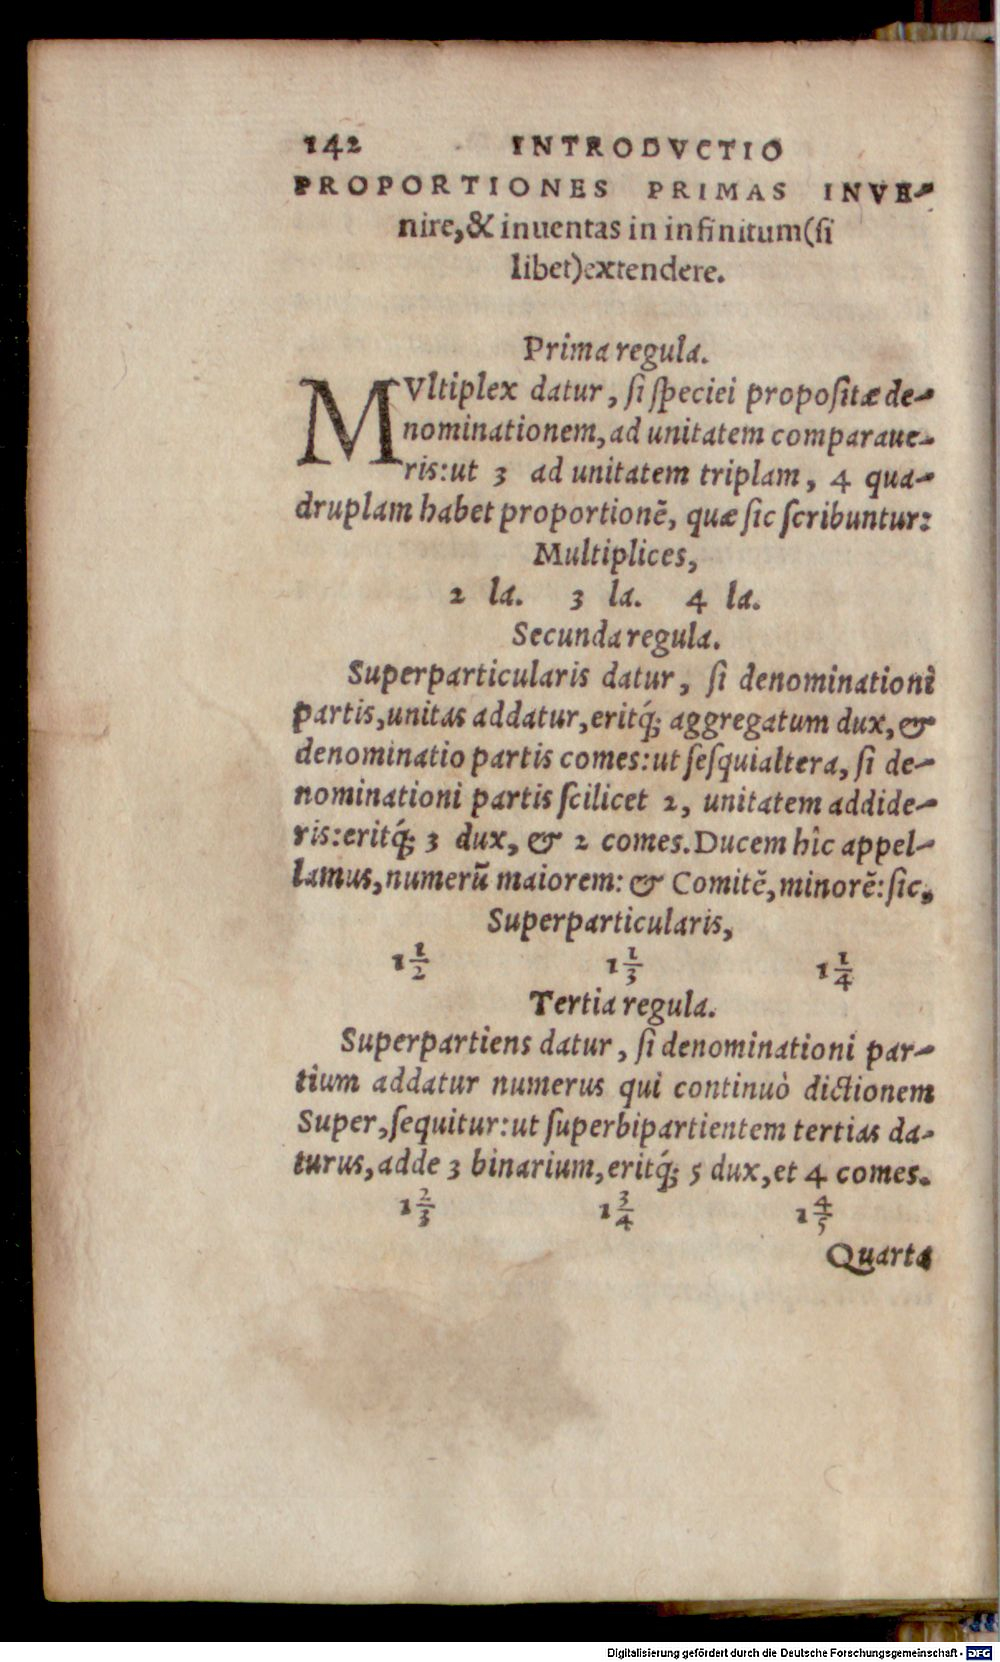 142 INTRODVCTIO
PROPORTIONES PRIMAS INVE-
nire,& inuentas in infinitum(ſi
libet)extendere.
Prima regula.
MVltiplex datur, ſi ſpeciei propoſitæ de-
nominationem, ad unitatem comparaue-
ris: ut 3 ad unitatem triplam, 4 qua-
druplam habet proportionē, quæ ſic ſcribuntur:
Multiplices,
2 la. 3 la. 4 la.
Secunda regula.
Superparticularis datur, ſi denominationi
partis, unitas addatur, eritq́; aggregatum dux, &
denominatio partis comes: ut ſeſquialtera, ſi de-
nominationi partis ſcilicet 2, unitatem addide-
ris: eritq́; 3 dux, & 2 comes. Ducem hîc appel-
lamus, numerū maiorem: & Comitē, minorē: ſic,
Superparticularis,
1 1/2 1 1/3 1 1/4
Tertia regula.
Superpartiens datur, ſi denominationi par-
tium addatur numerus qui continuò dictionem
Super, ſequitur: ut ſuperbipartientem tertias da-
turus, adde 3 binarium, eritq́; 5 dux, et 4 comes.
1 2/3 1 3/4 1 4/5
Quarta
Digitalisierung gefördert durch die Deutsche Forschungsgemeinschaft - DFG